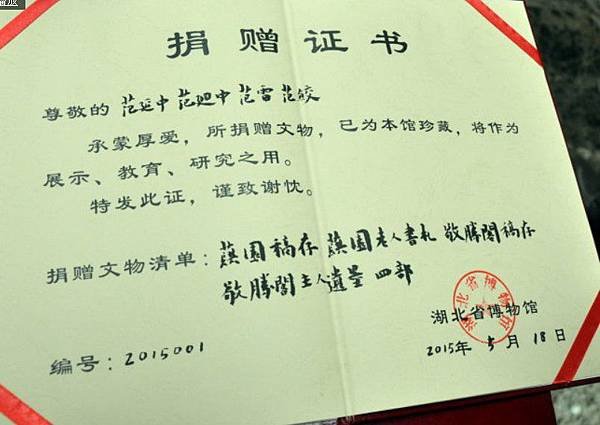 捐赠证书
尊敬的 范延中 范迥中 范雷 范皎
承蒙厚爱，所捐赠文物，已为本馆珍藏，将作为
展示、教育、研究之用。
特发此证，谨致谢忱。
捐赠文物清单：蕻園稿存 蕻園老人書札 敬勝閣稿存
敬勝閣主人遺墨 四部
湖北省博物馆
湖北省博物馆
编号：2015001
2015年 5 月 18 日